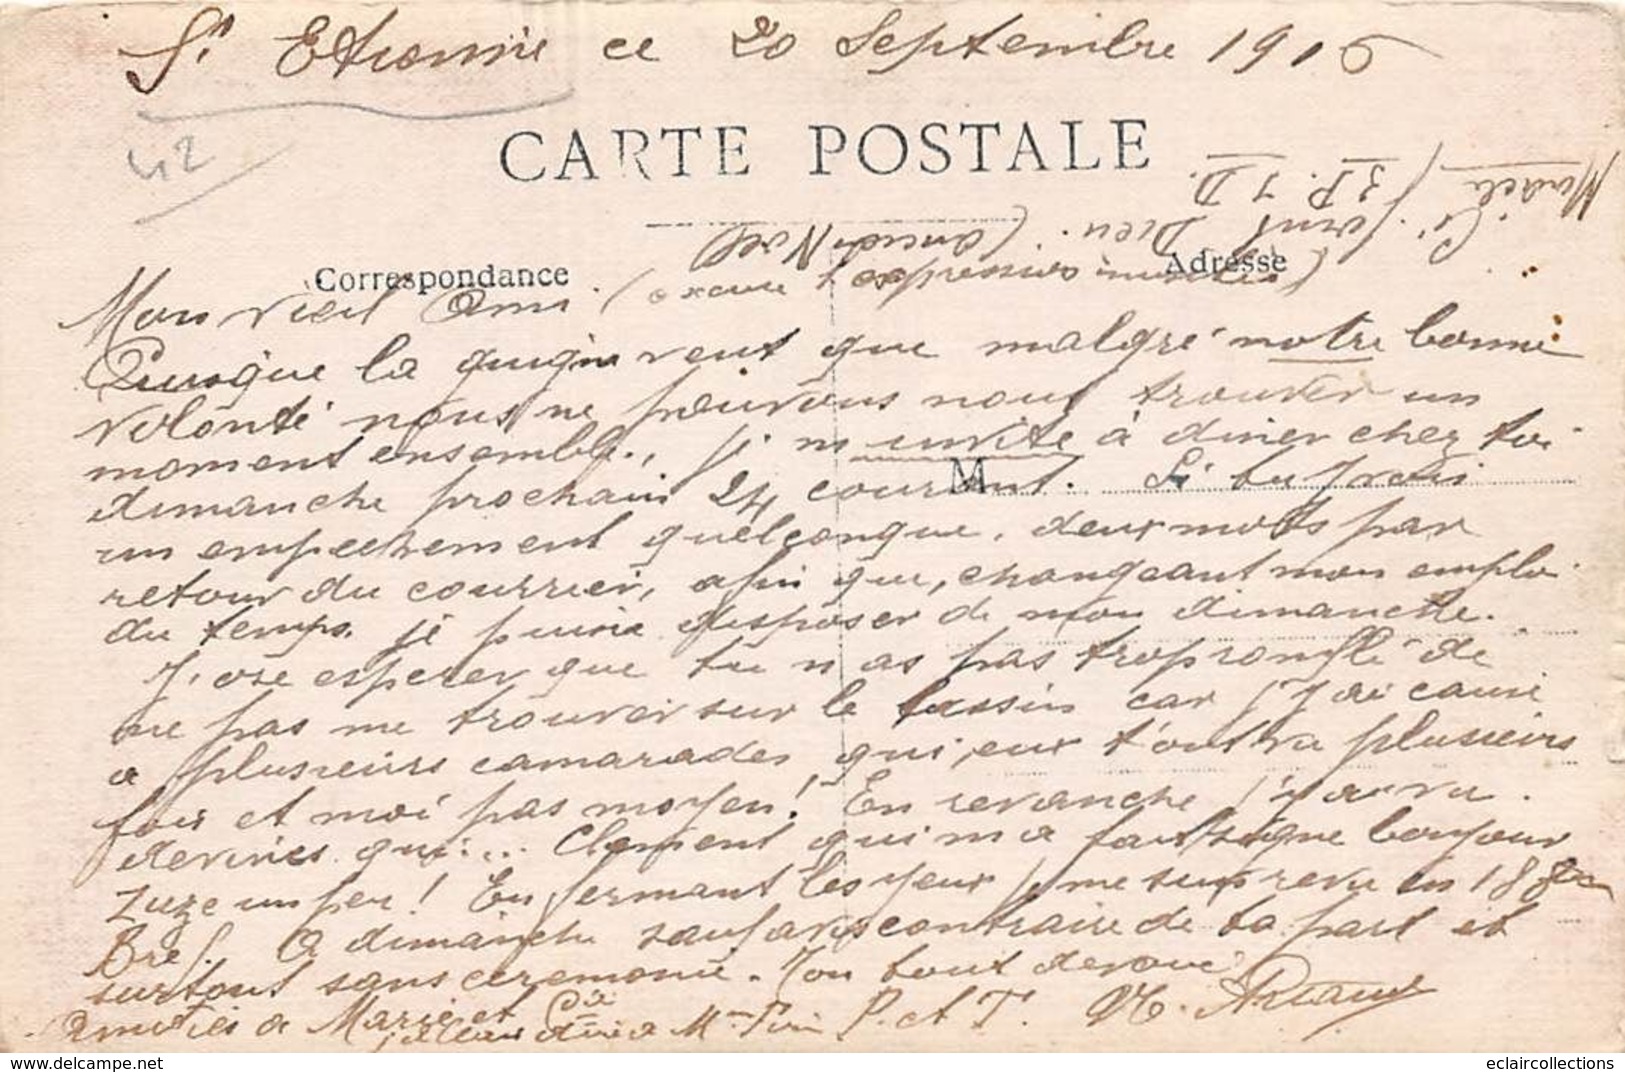 St Etienne ce 20 Septembre 1916
42
CARTE POSTALE
Correspondance
Adresse
Mon vieil Ami. (excuse l'expression
Puisque la guigne veut que malgré notre bonne
volonté nous ne pouvons nous trouver un
moment ensemble, je m'invite à diner chez toi
dimanche prochain 24 courant. Si tu avais
M
un empechement quelconque, deux mots par
retour du courrier, afin que, changeant mon emploi
du temps, je puisse disposer de mon dimanche.
J'ose esperer que tu n'as pas trop ronflé de
ne pas me trouver sur le bassin car j'ai causé
a plusieurs camarades qui, eux t'ont vu plusieurs
fois et moi pas moyen! En revanche j'y ai vu.
devines qui... Clement qui m'a fait signe bonjour
zuze un peu! En fermant les yeux je me suis revu en 188
Bref. A dimanche sauf avis contraire de ta part et
surtout sans ceremonie. Ton tout devoué
Amitiés a Marie et Cie
P. et T.
eclaircollections